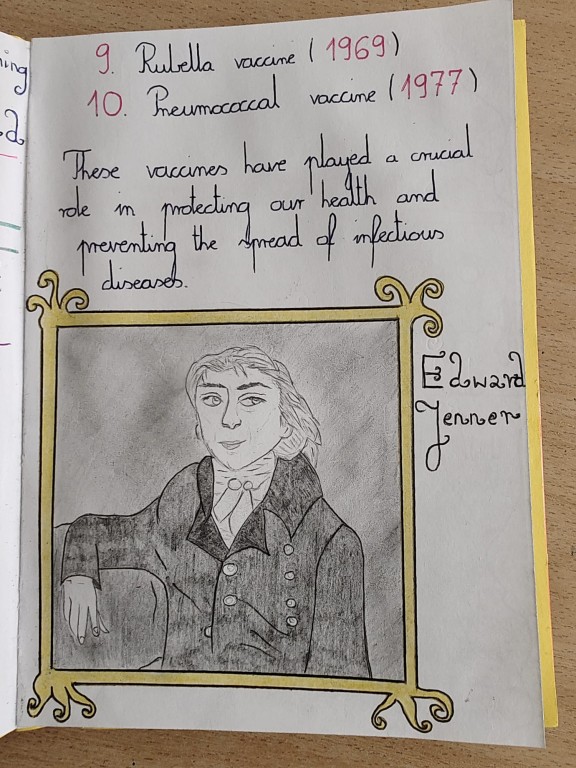 9. Rubella vaccine (1969)
10. Pneumococcal vaccine (1977)
These vaccines have played a crucial
role in protecting our health and
preventing the spread of infectious
diseases.
Edward
Jenner